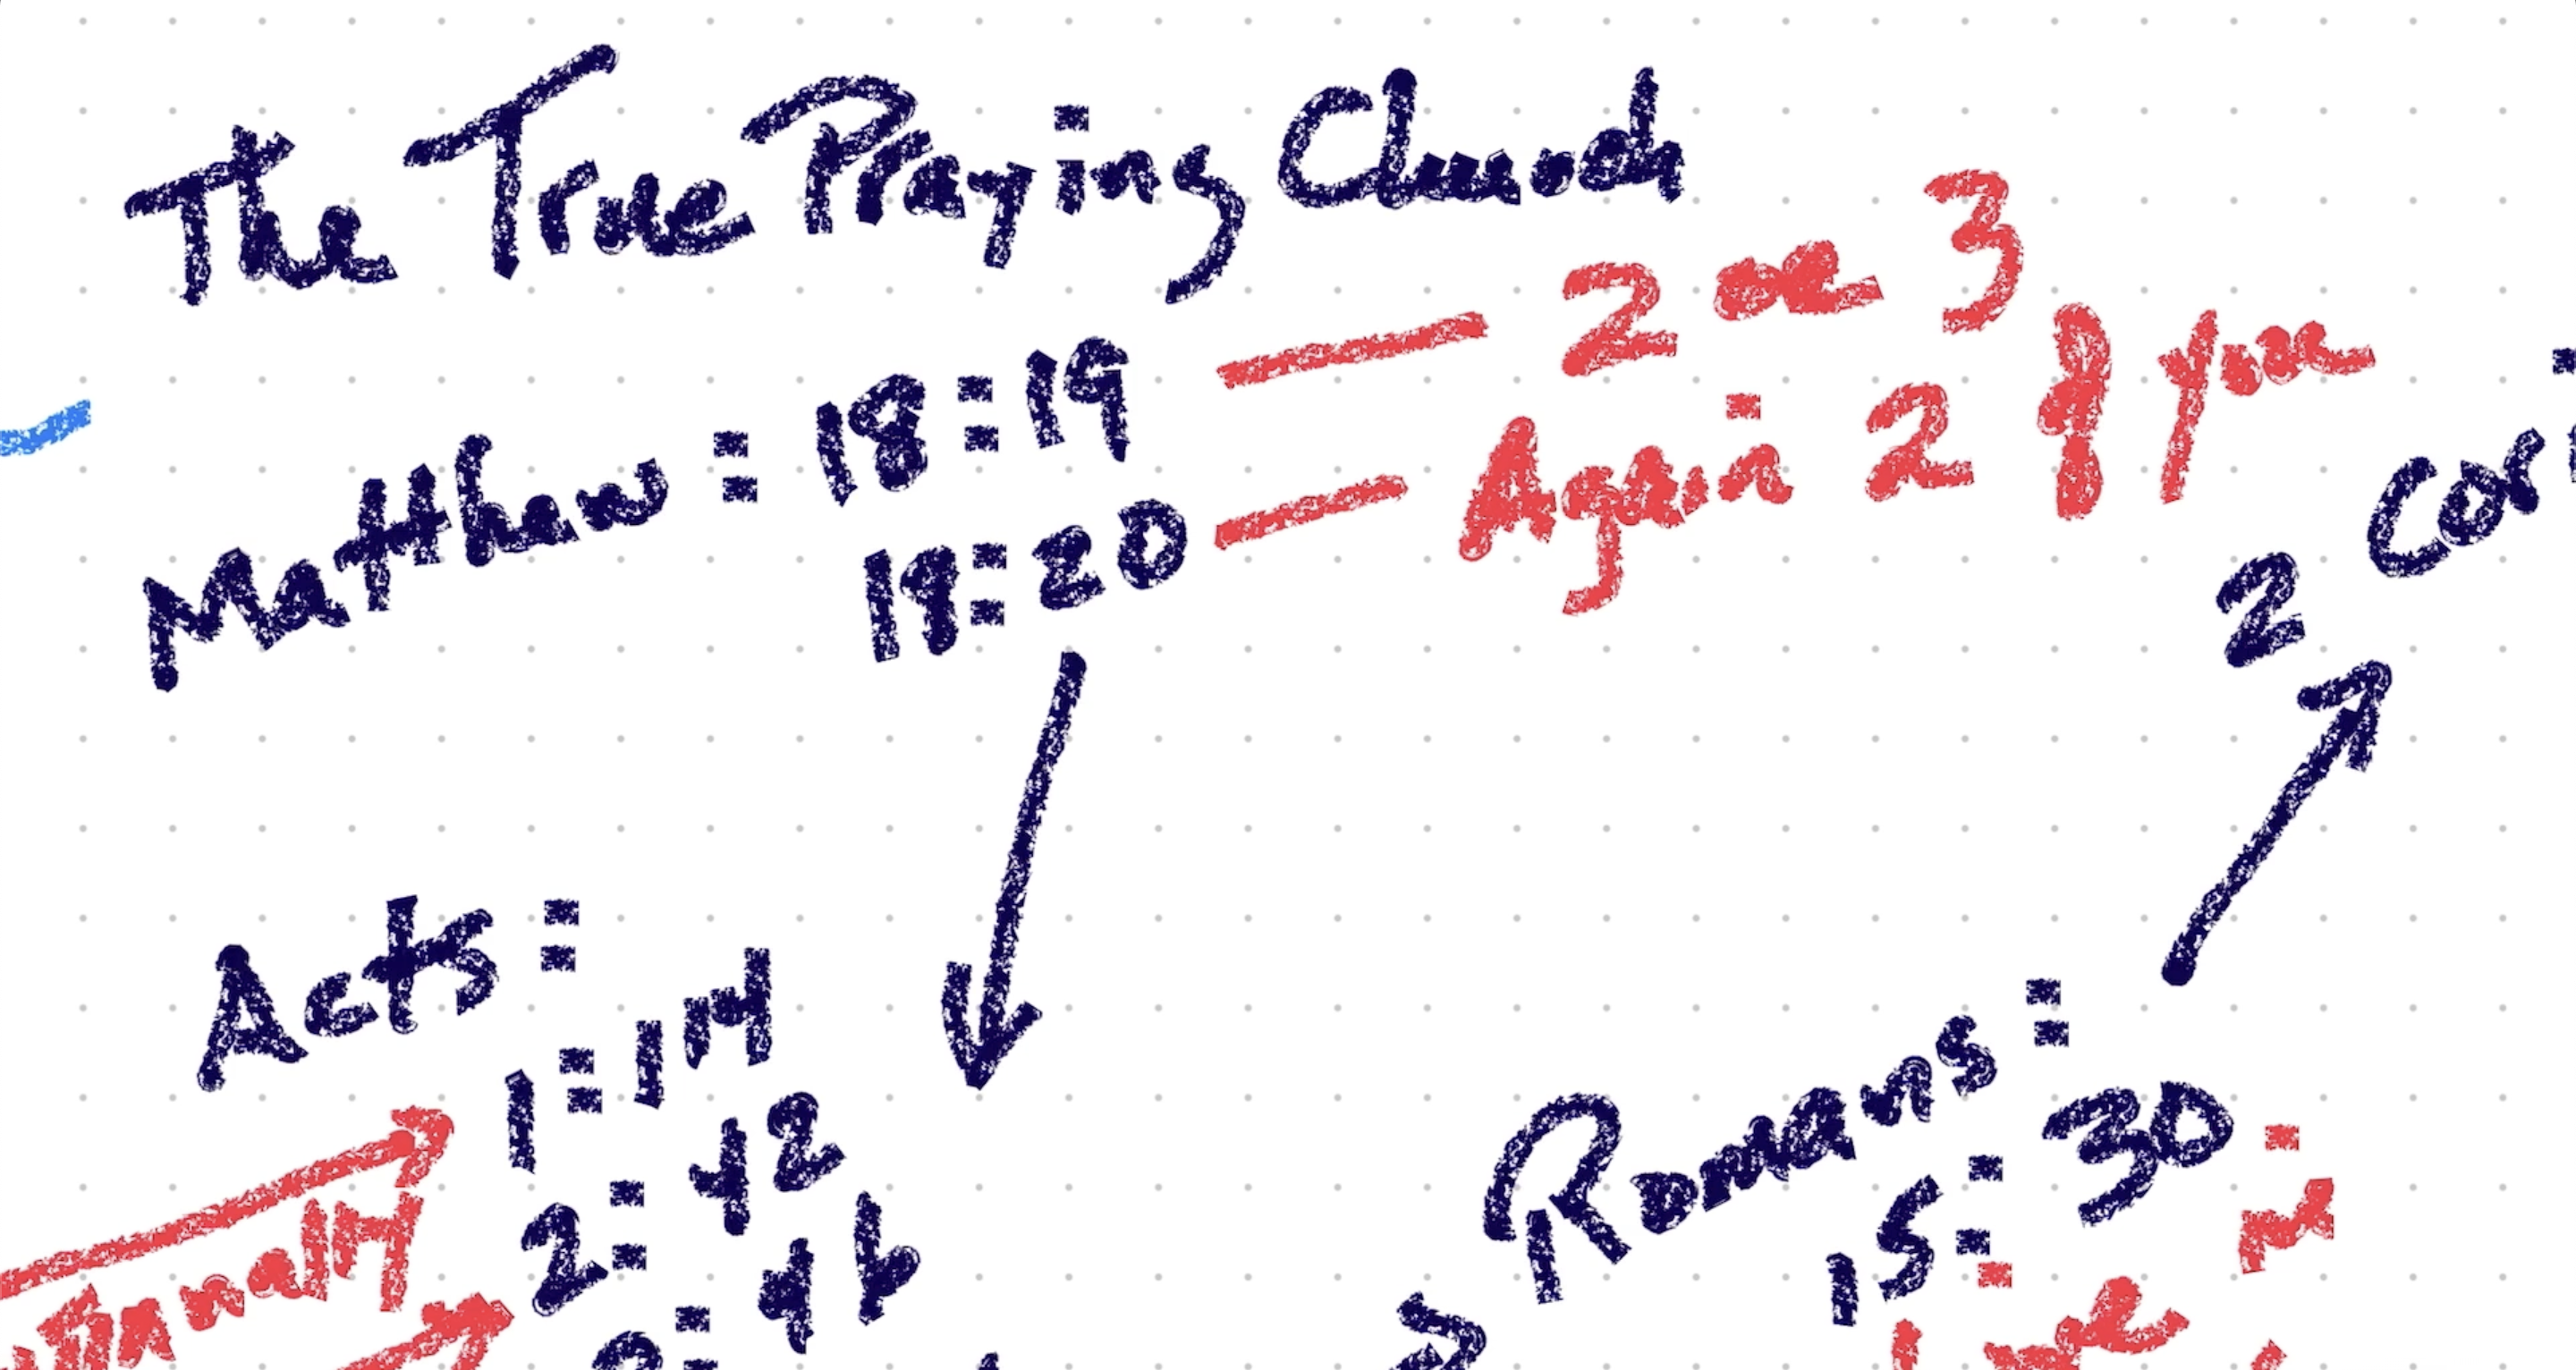 The True Praying Church
Matthew : 18:19 — 2 or 3
18:20 — Again 2 of you
2 Cor
Acts :
1:14
2:42
46
Romans :
15:30